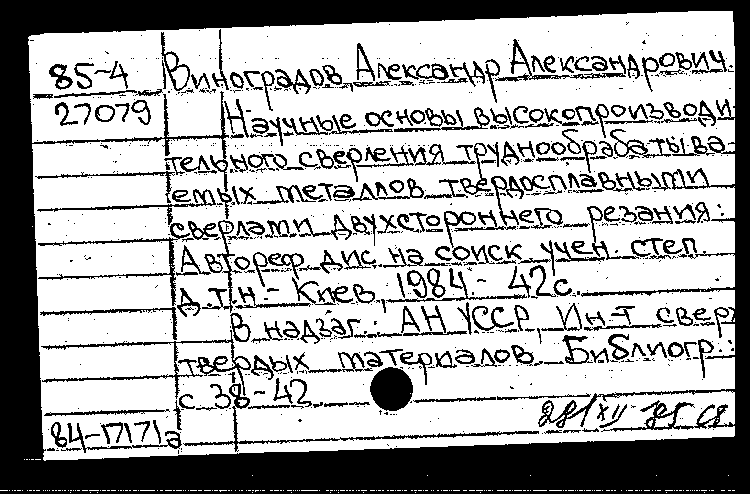 85-4 Виноградов, Александр Александрович.
27079 Научные основы высокопроизводи-
тельного сверления труднообрабатыва-
емых металлов твердосплавными
сверлами двухстороннего резания:
Автореф. дис. на соиск. учен. степ.
д.т.н. - Киев, 1984. - 42 с.
В надзаг.: АН УССР, Ин-т сверх
твердых материалов. Библиогр.:
с. 38-42.
84-17171а